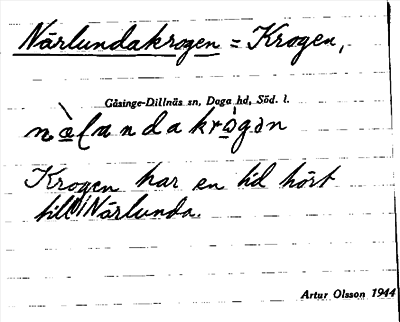 Närlundakrogen = Krogen,
Gåsinge-Dillnäs sn, Daga hd, Söd. l.
Krogen har en tid hört
till N Närlunda.
Artur Olsson 1944